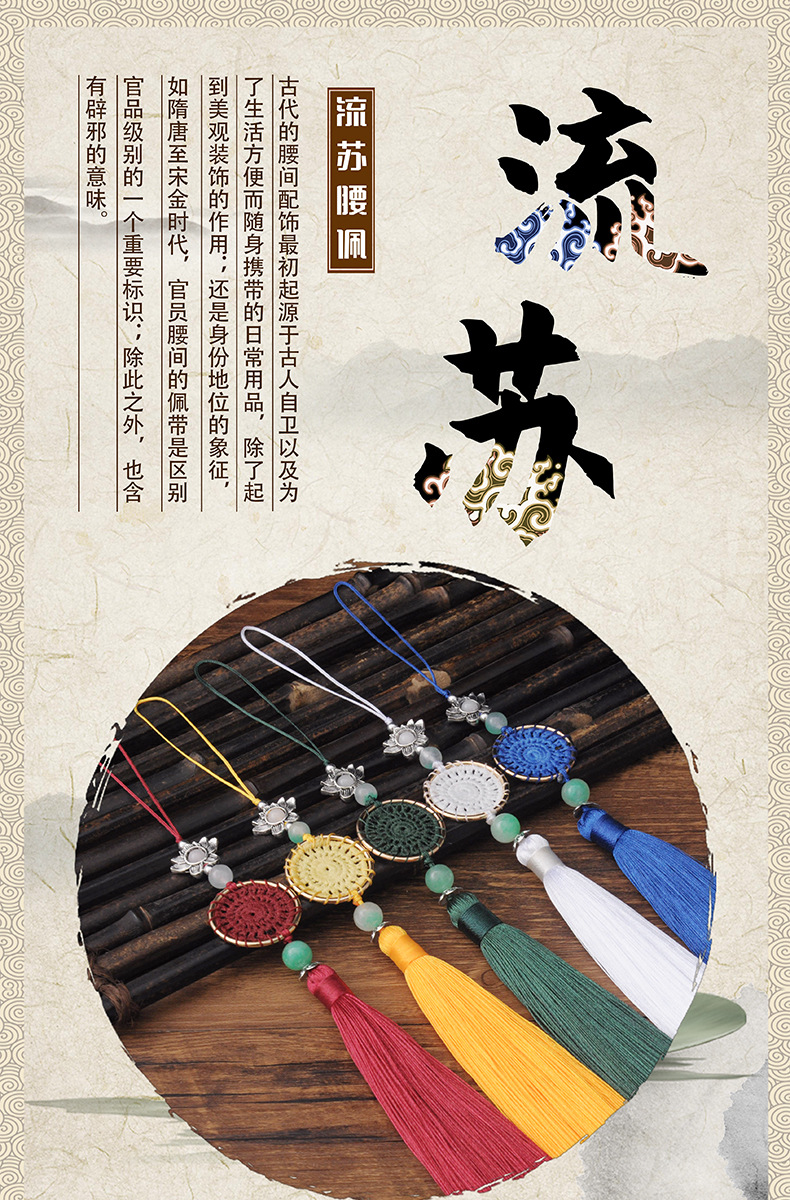 流苏
流苏腰佩
古代的腰间配饰最初起源于古人自卫以及为
了生活方便而随身携带的日常用品，除了起
到美观装饰的作用；还是身份地位的象征，
如隋唐至宋金时代，官员腰间的佩带是区别
官品级别的一个重要标识；除此之外，也含
有辟邪的意味。